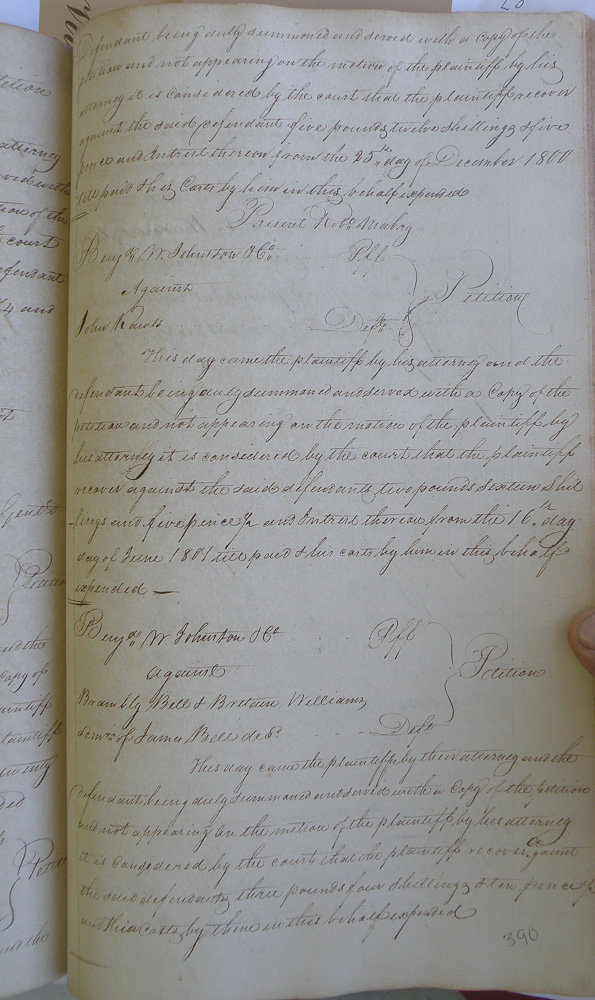 Defendant being duly summoned and served with a Copy of the
petition and not appearing on the motion of the plaintiff by his
attorney it is Considered by the court that the plaintiff recover
against the said defendant five pounds twelve shillings & five
pence and Intrest thereon from the 25th day of December 1800
till paid & his Costs by him in this behalf expended
Present Robt Mabry
Benja W. Johnston & Co. Plff
Against
Petition
John Rawls Deft
This day came the plaintiff by his attorney and the
defendant being duly summoned and served with a Copy of the
petition and not appearing on the motion of the plaintiff by
his attorney it is considered by the court that the plaintiff
recover against the said defendant two pounds sixteen shil
lings and five pence ½ and Intrest thereon from the 16th day
day of June 1801 till paid & his costs by him in this behalf
expended —
Benja W Johnston & Co Plff
against
Petition
Brambly Bell & Britain Williams
of James Bell decd Deft
This day came the plaintiff by their attorney and the
defendant being duly summoned and served with a Copy of the petition
and not appearing on the motion of the plaintiff by his attorney
it is Considered by the court that the plaintiff recover against
the said defendants three pounds four shillings & ten pence ½
and their Costs by them in this behalf expended
390